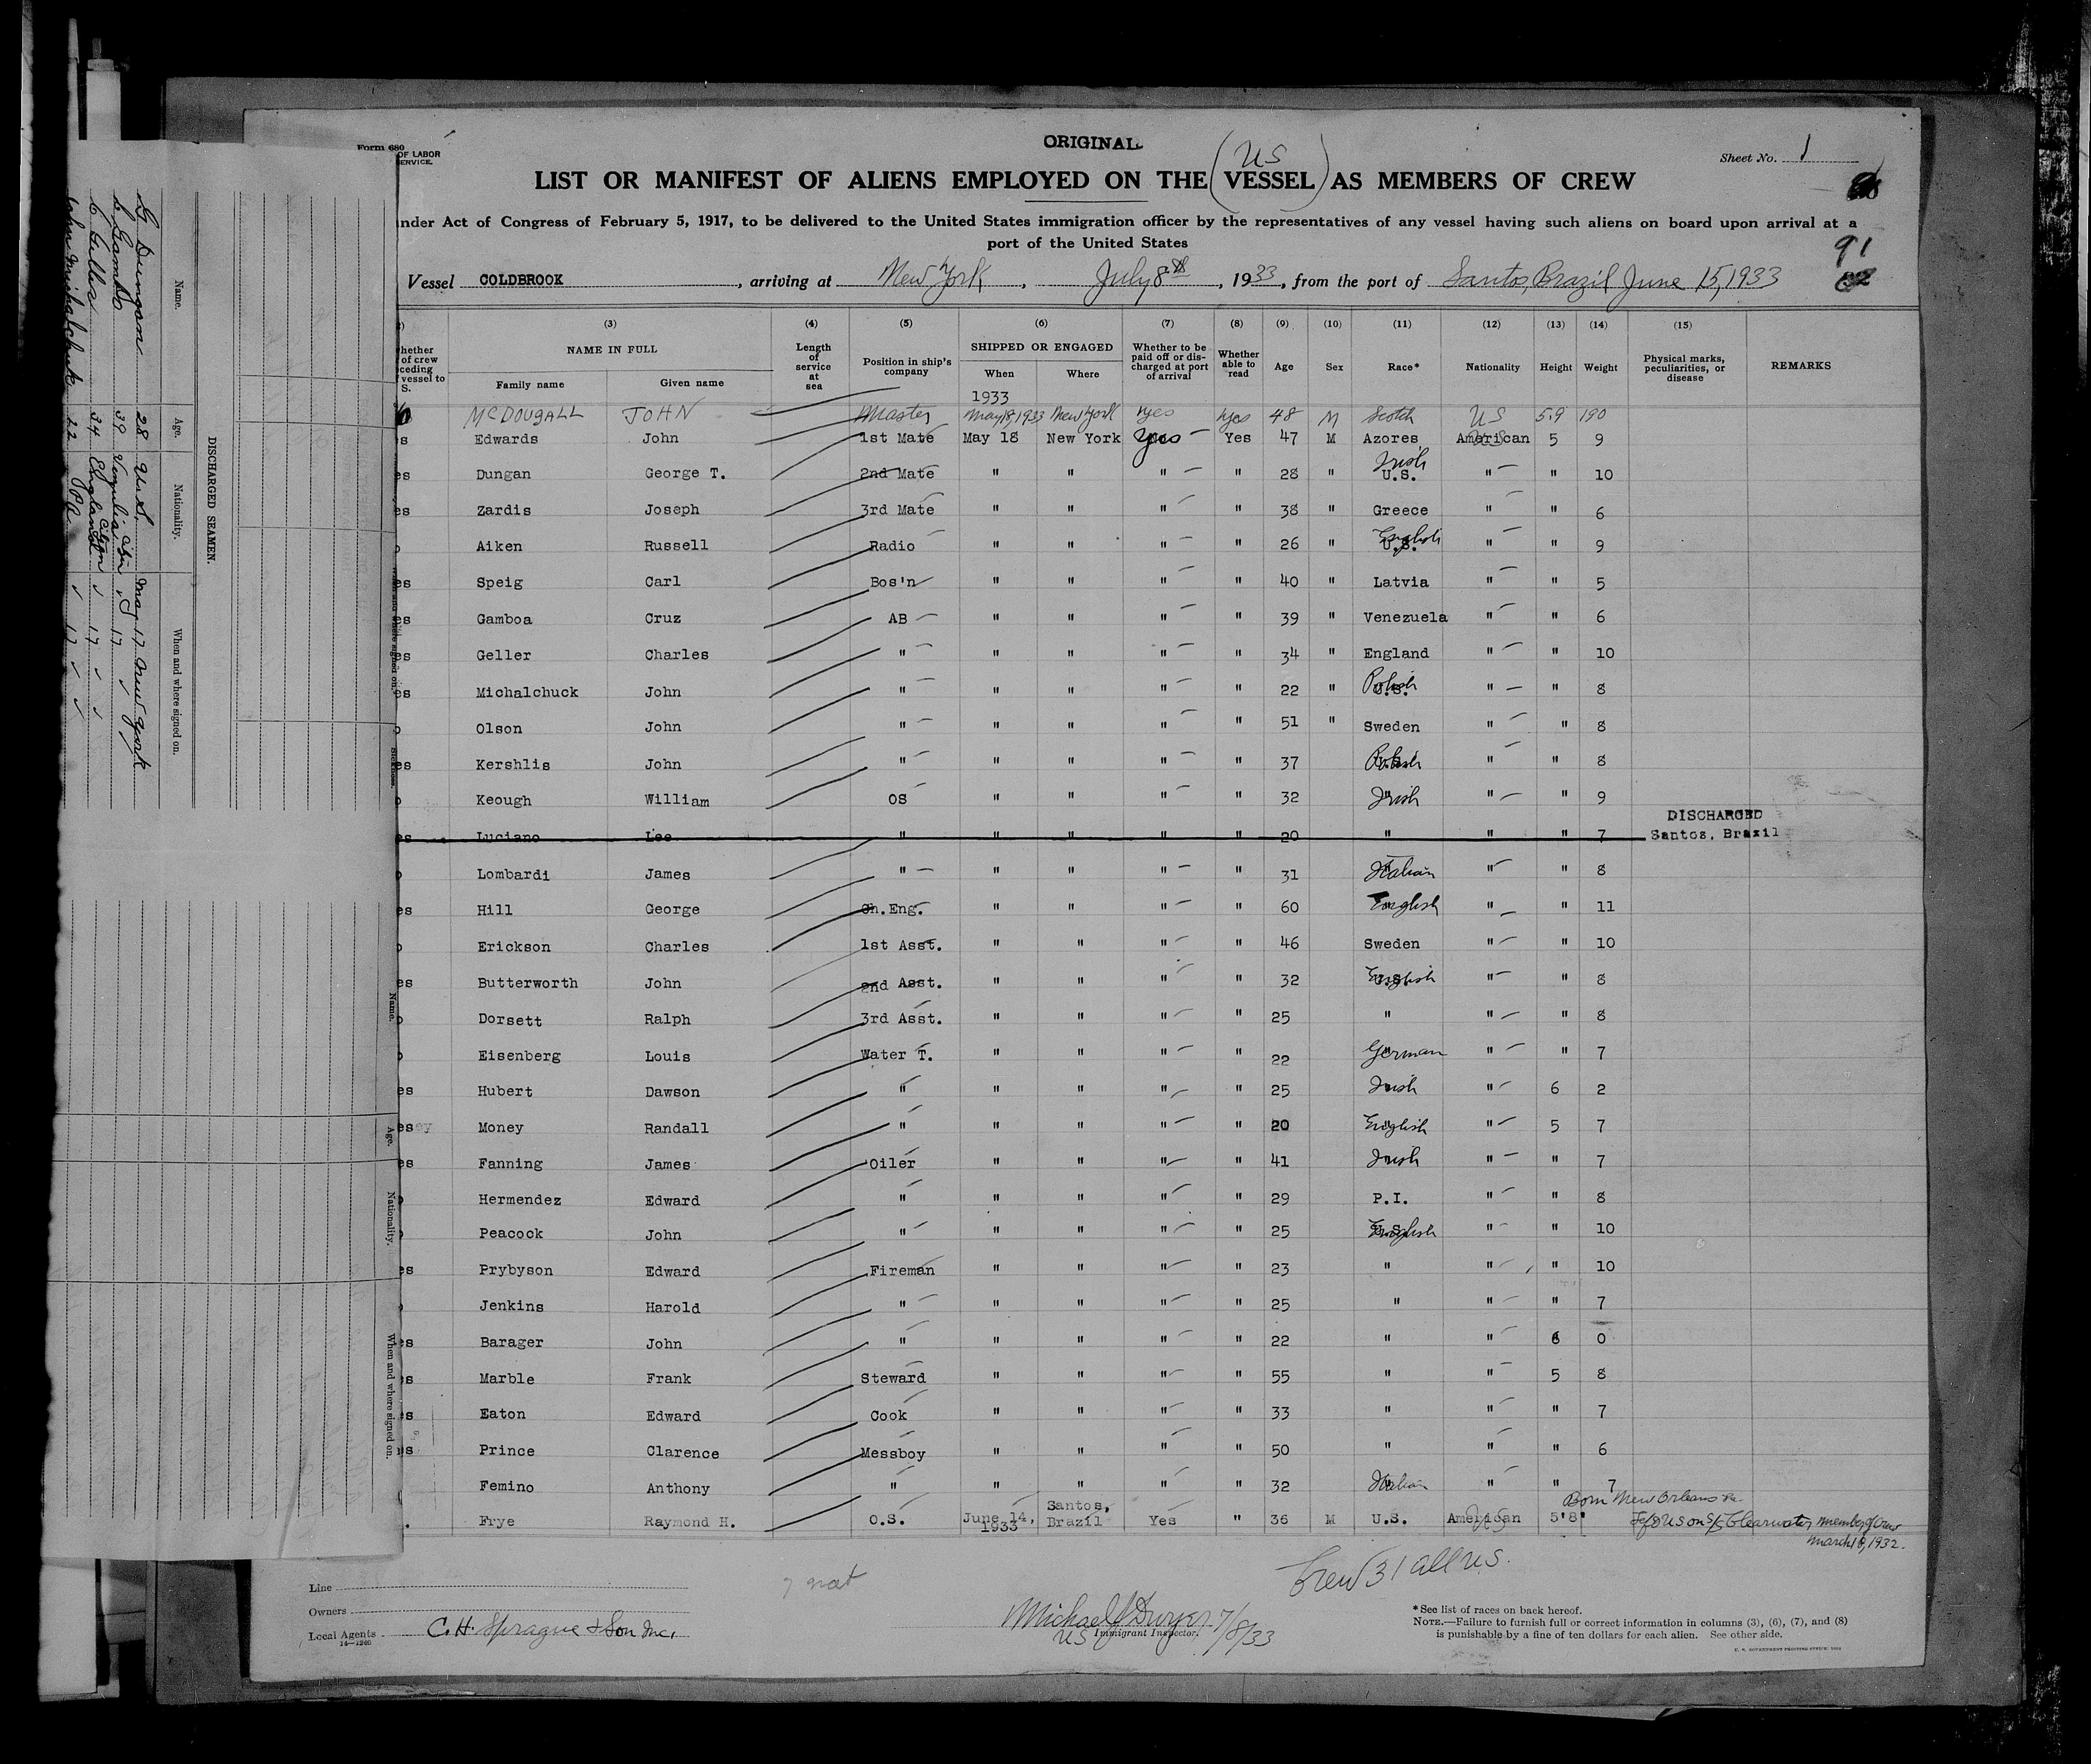 Form 680
OF LABOR
ERVICE.
ORIGINAL
(US)
Sheet No. 1
LIST OR MANIFEST OF ALIENS EMPLOYED ON THE VESSEL AS MEMBERS OF CREW
nder Act of Congress of February 5, 1917, to be delivered to the United States immigration officer by the representatives of any vessel having such aliens on board upon arrival at a
port of the United States
91
Vessel COLDBROOK, arriving at New York, July 8th, 1933, from the port of Santos, Brazil June 15, 1933
(3) (4) (5) (6) (7) (8) (9) (10) (11) (12) (13) (14) (15)
hether of crew ceding vessel to S. NAME IN FULL Family name Given name Length of service at sea Position in ship's company SHIPPED OR ENGAGED When Where Whether to be paid off or discharged at port of arrival Whether able to read Age Sex Race* Nationality Height Weight Physical marks, peculiarities, or disease REMARKS
1933
McDOUGALL JOHN Master May 18, 1933 New York yes yes 48 M Scotch US 5.9 190
s Edwards John 1st Mate May 18 New York Yes Yes 47 M Azores American US 5 9
es Dungan George T. 2nd Mate " " " " 28 " U.S. Irish " " 10
es Zardis Joseph 3rd Mate " " " " 38 " Greece " " 6
o Aiken Russell Radio " " " " 26 " U.S. English " " 9
es Speig Carl Bos'n " " " " 40 " Latvia " " 5
es Gamboa Cruz AB " " " " 39 " Venezuela " " 6
es Geller Charles " " " " " 34 " England " " 10
es Michalchuck John " " " " " 22 " U.S. Polish " " 8
o Olson John " " " " " 51 " Sweden " " 8
es Kershlis John " " " " " 37 " " 8
o Keough William OS " " " " 32 Irish " " 9
es Luciano Lee " " " " " 20 " " " 7 DISCHARGED Santos, Brazil
o Lombardi James " " " " " 31 Italian " " 8
es Hill George Ch.Eng. " " " " 60 English " " 11
o Erickson Charles 1st Asst. " " " " 46 Sweden " " 10
es Butterworth John 2nd Asst. " " " " 32 U.S. English " " 8
o Dorsett Ralph 3rd Asst. " " " " 25 " " " 8
o Eisenberg Louis Water T. " " " " 22 German " " 7
es Hubert Dawson " " " " " 25 Irish " 6 2
es Money Randall " " " " " 20 English " 5 7
es Fanning James Oiler " " " " 41 Irish " " 7
o Hermendez Edward " " " " " 29 P.I. " " 8
o Peacock John " " " " " 25 U.S. English " " 10
es Prybyson Edward Fireman " " " " 23 " " " 10
o Jenkins Harold " " " " " 25 " " " 7
es Barager John " " " " " 22 " " 6 0
es Marble Frank Steward " " " " 55 " " 5 8
s Eaton Edward Cook " " " " 33 " " " 7
s Prince Clarence Messboy " " " " 50 " " " 6
Femino Anthony " " " " " 32 Italian " " 7
Frye Raymond H. O.S. June 14, 1933 Santos, Brazil Yes " 36 M U.S. American US 5'8" Born New Orleans La.
US on S/S Clearwater member of Crew
March 18, 1932.
Crew 31 all US.
Line
Owners
Local Agents C. H. Sprague & Son Inc.
14-1240
Michael J Dwyer 7/8/33
US Immigrant Inspector.
*See list of races on back hereof.
NOTE.—Failure to furnish full or correct information in columns (3), (6), (7), and (8)
is punishable by a fine of ten dollars for each alien. See other side.
U. S. GOVERNMENT PRINTING OFFICE
DISCHARGED SEAMEN.
Name. Age. Nationality. When and where signed on.
G Dungan 28 U.S. May 17 New York
C Gamboa 39 17
34 England citizen 17
John Michalchuk 22 17
Name. Age. Nationality. When and where signed on.